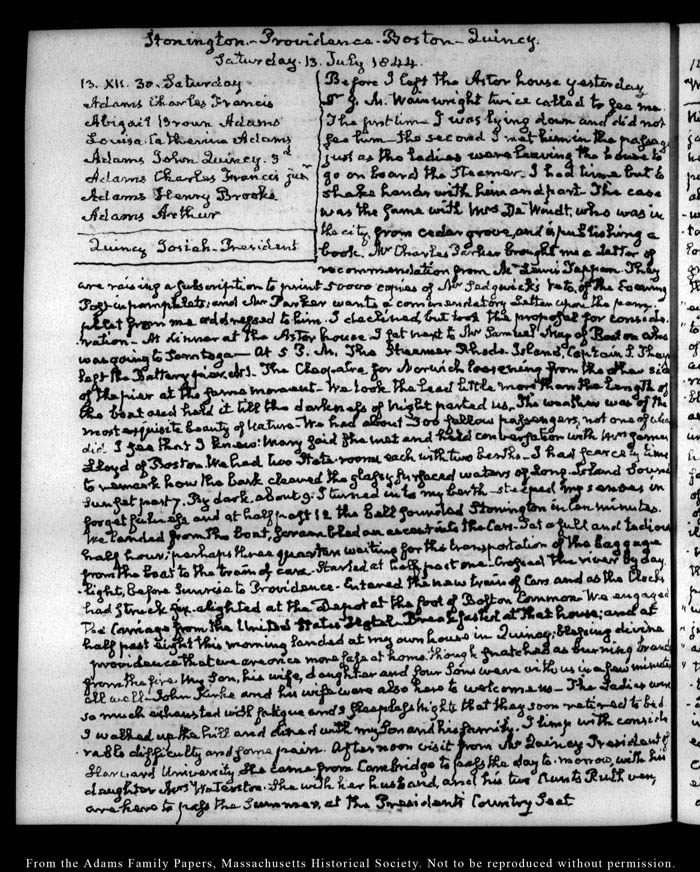 Stonington - Providence. Boston - Quincy.
Saturday. 13. July 1844.
13. XII. 30. Saturday
Adams Charles Francis
Abigail Brown Adams
Louisa Catherine Adams
Adams John Quincy. 3d
Adams Charles Francis junr
Adams Henry Brooks
Adams Arthur
Quincy Josiah - President
Before I left the Astor house yesterday
Dr J. M. Wainwright twice called to see me.
The first time I was lying down and did not
see him the second I met him in the passage
just as the Ladies were leaving the house to
go on board the Steamer. I had time but to
shake hands with him and part. The case
was the same with Mrs De Windt, who was in
the city from Cedar grove, and is publishing a
book. Mr Charles Parker brought me a letter of
recommendation from Mr Lewis Tappan. They
are raising a subscription to print 50000 copies of Mr Sedgwick's of the Evening
Post in pamphlets; and Mr Parker wants a commendatory Letter upon the pam-
phlet from me addressed to him. I declined, but took the proposal for conside-
ration - At dinner at the Astor house I sat next to Mr Samuel May of Boston who
was going to Saratoga - At 5 P. M. The Steamer Rhode Island, Captain
left the Battery pier No 1. The Cleopatra for Norwich loosening from the other side
of the pier at the same moment. We took the lead little more than the length of
the boat and held it till the darkness of Night parted us. The weather was of the
most exquisite beauty of Nature. We had about 300 fellow passengers, not one of whom
did I see that I knew: Mary said she met and held conversation with Mrs James
Lloyd of Boston. We had two State-rooms each with two berths - I had scarcely time
to remark how the bark cleaved the glassy surfaced waters of Long-Island Sound
Sunset past 7. By dark, about 9. I turned in to my berth - steeped my senses in
forgetfulness and at half past 12 the bell sounded Stonington in ten minutes.
We landed from the boat, scrambled an ascent into the Cars. Sat a full and tedious
half hour; perhaps three quarters waiting for the transportation of the baggage
from the boat to the train of cars. Started at half past one. Crossed the river by day
light, before Sunrise to Providence. Entered the new train of Cars and as the Clock
had struck six alighted at the Depot at the foot of Boston Common. We engaged
the Carriage from the United States Hotel. Breakfasted at that house; and at
half past eight this morning landed at my own house in Quincy; blessing divine
providence that we are once more safe at home though snatched as burning brands
from the fire. My Son, his wife, daughter and four Sons were with us in a few minutes
all well - John Kirke and his wife were also here to welcome us - The Ladies were
so much exhausted with fatigue and sleepless nights that they soon retired to bed.
I walked up the hill and dined with my Son and his family. I limp with conside-
rable difficulty and some pain. Afternoon visit from Mr Quincy President of
Harvard University. He came from Cambridge to pass the day to-morrow, with his
daughter Mrs Waterston. She with her husband, and his two Aunts Ruthven,
are here to pass the Summer, at the President's Country Seat
From the Adams Family Papers, Massachusetts Historical Society. Not to be reproduced without permission.